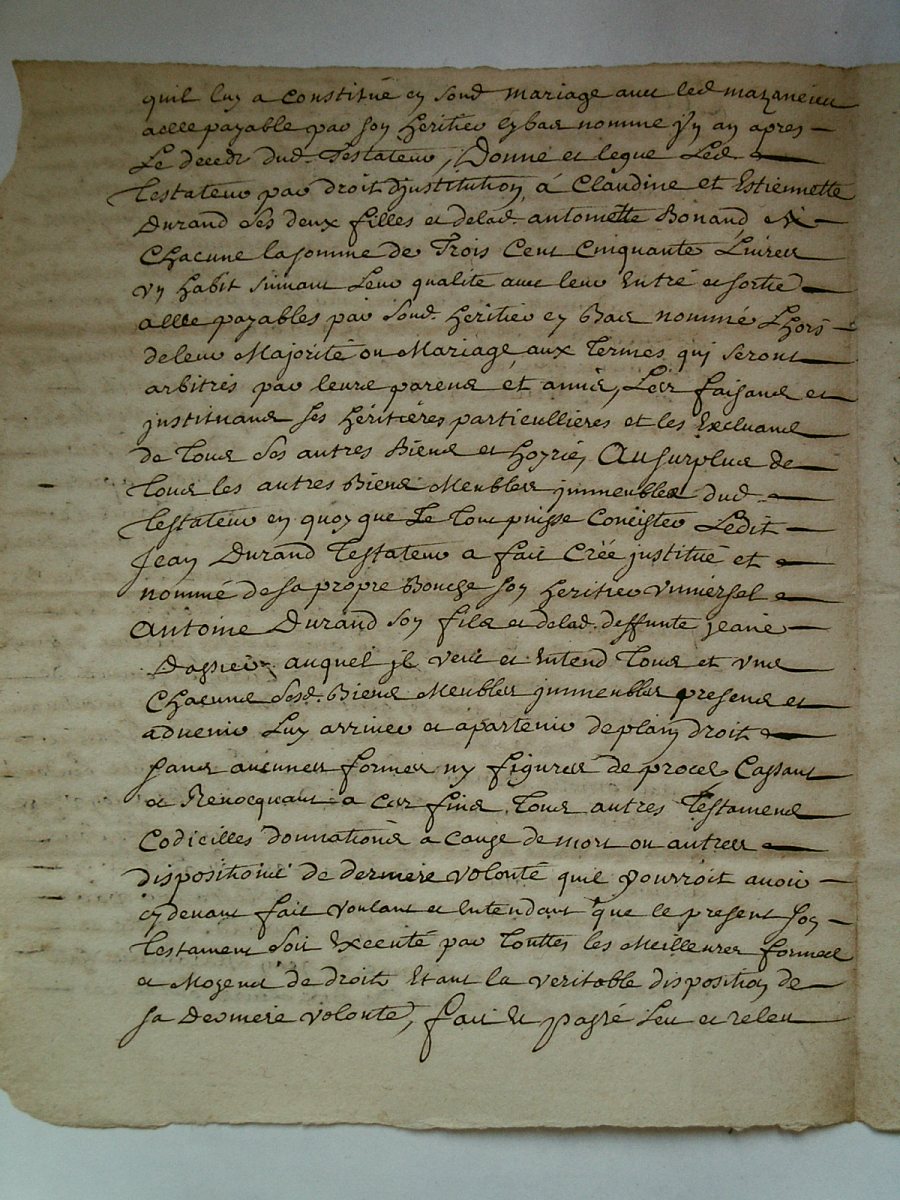 quil luy a constitué en sond mariage avec led mazancieu
a elle payable par son heritier cy bas nommé un an apres
Le deced dud. Testateur, Donne et legue Led
testateur par droit d'justitution, á Claudine et Estiennette
Durand ses deux filles et delad. antoinette Bonand, et
Chacune la somme de Trois Cent Cinquante Livres
un habit suivant Leur qualité avec leur Entré et sortie
a elle payables par sond. héritier cy Bas nommé Lhors
de leur Majorité ou Mariage aux termes qui seront
arbitrés par leurs parens et amis, Les faisans et
justituans ses héritiéres particullieres et les Excluans
de tous ses autres Biens et hoyrie, Au surplus de
tous les autres Biens Meubles jmmeubles dud.
testateur en quoy que Le tout puisse Concister Ledit
Jean Durand Testateur a fait Créé justitué et
nommé de sa propre Bouche son heritier universel
Antoine Durand son fils et delad. deffunte jeane
Dassier, auquel jl veut et Entend tous et uns
Chacuns sesd. Biens Meubles jmmeubles presens et
advenir Luy arriver et apartenir de plain droit
sans aucunes formes ny figures de proces Cassant
et Revocquant a ces fins tous autres Testamens
Codicilles donnations a cause de mort ou autres
dispositions de derniere volonté quil pourroit avoir
cy devant fait voulant et Entendant que le present son
testament soit Executé par touttes les Meilleures formes
et Moyens de droit Etant la veritable disposition de
sa derniere volonté, fait et passé Leu et releu